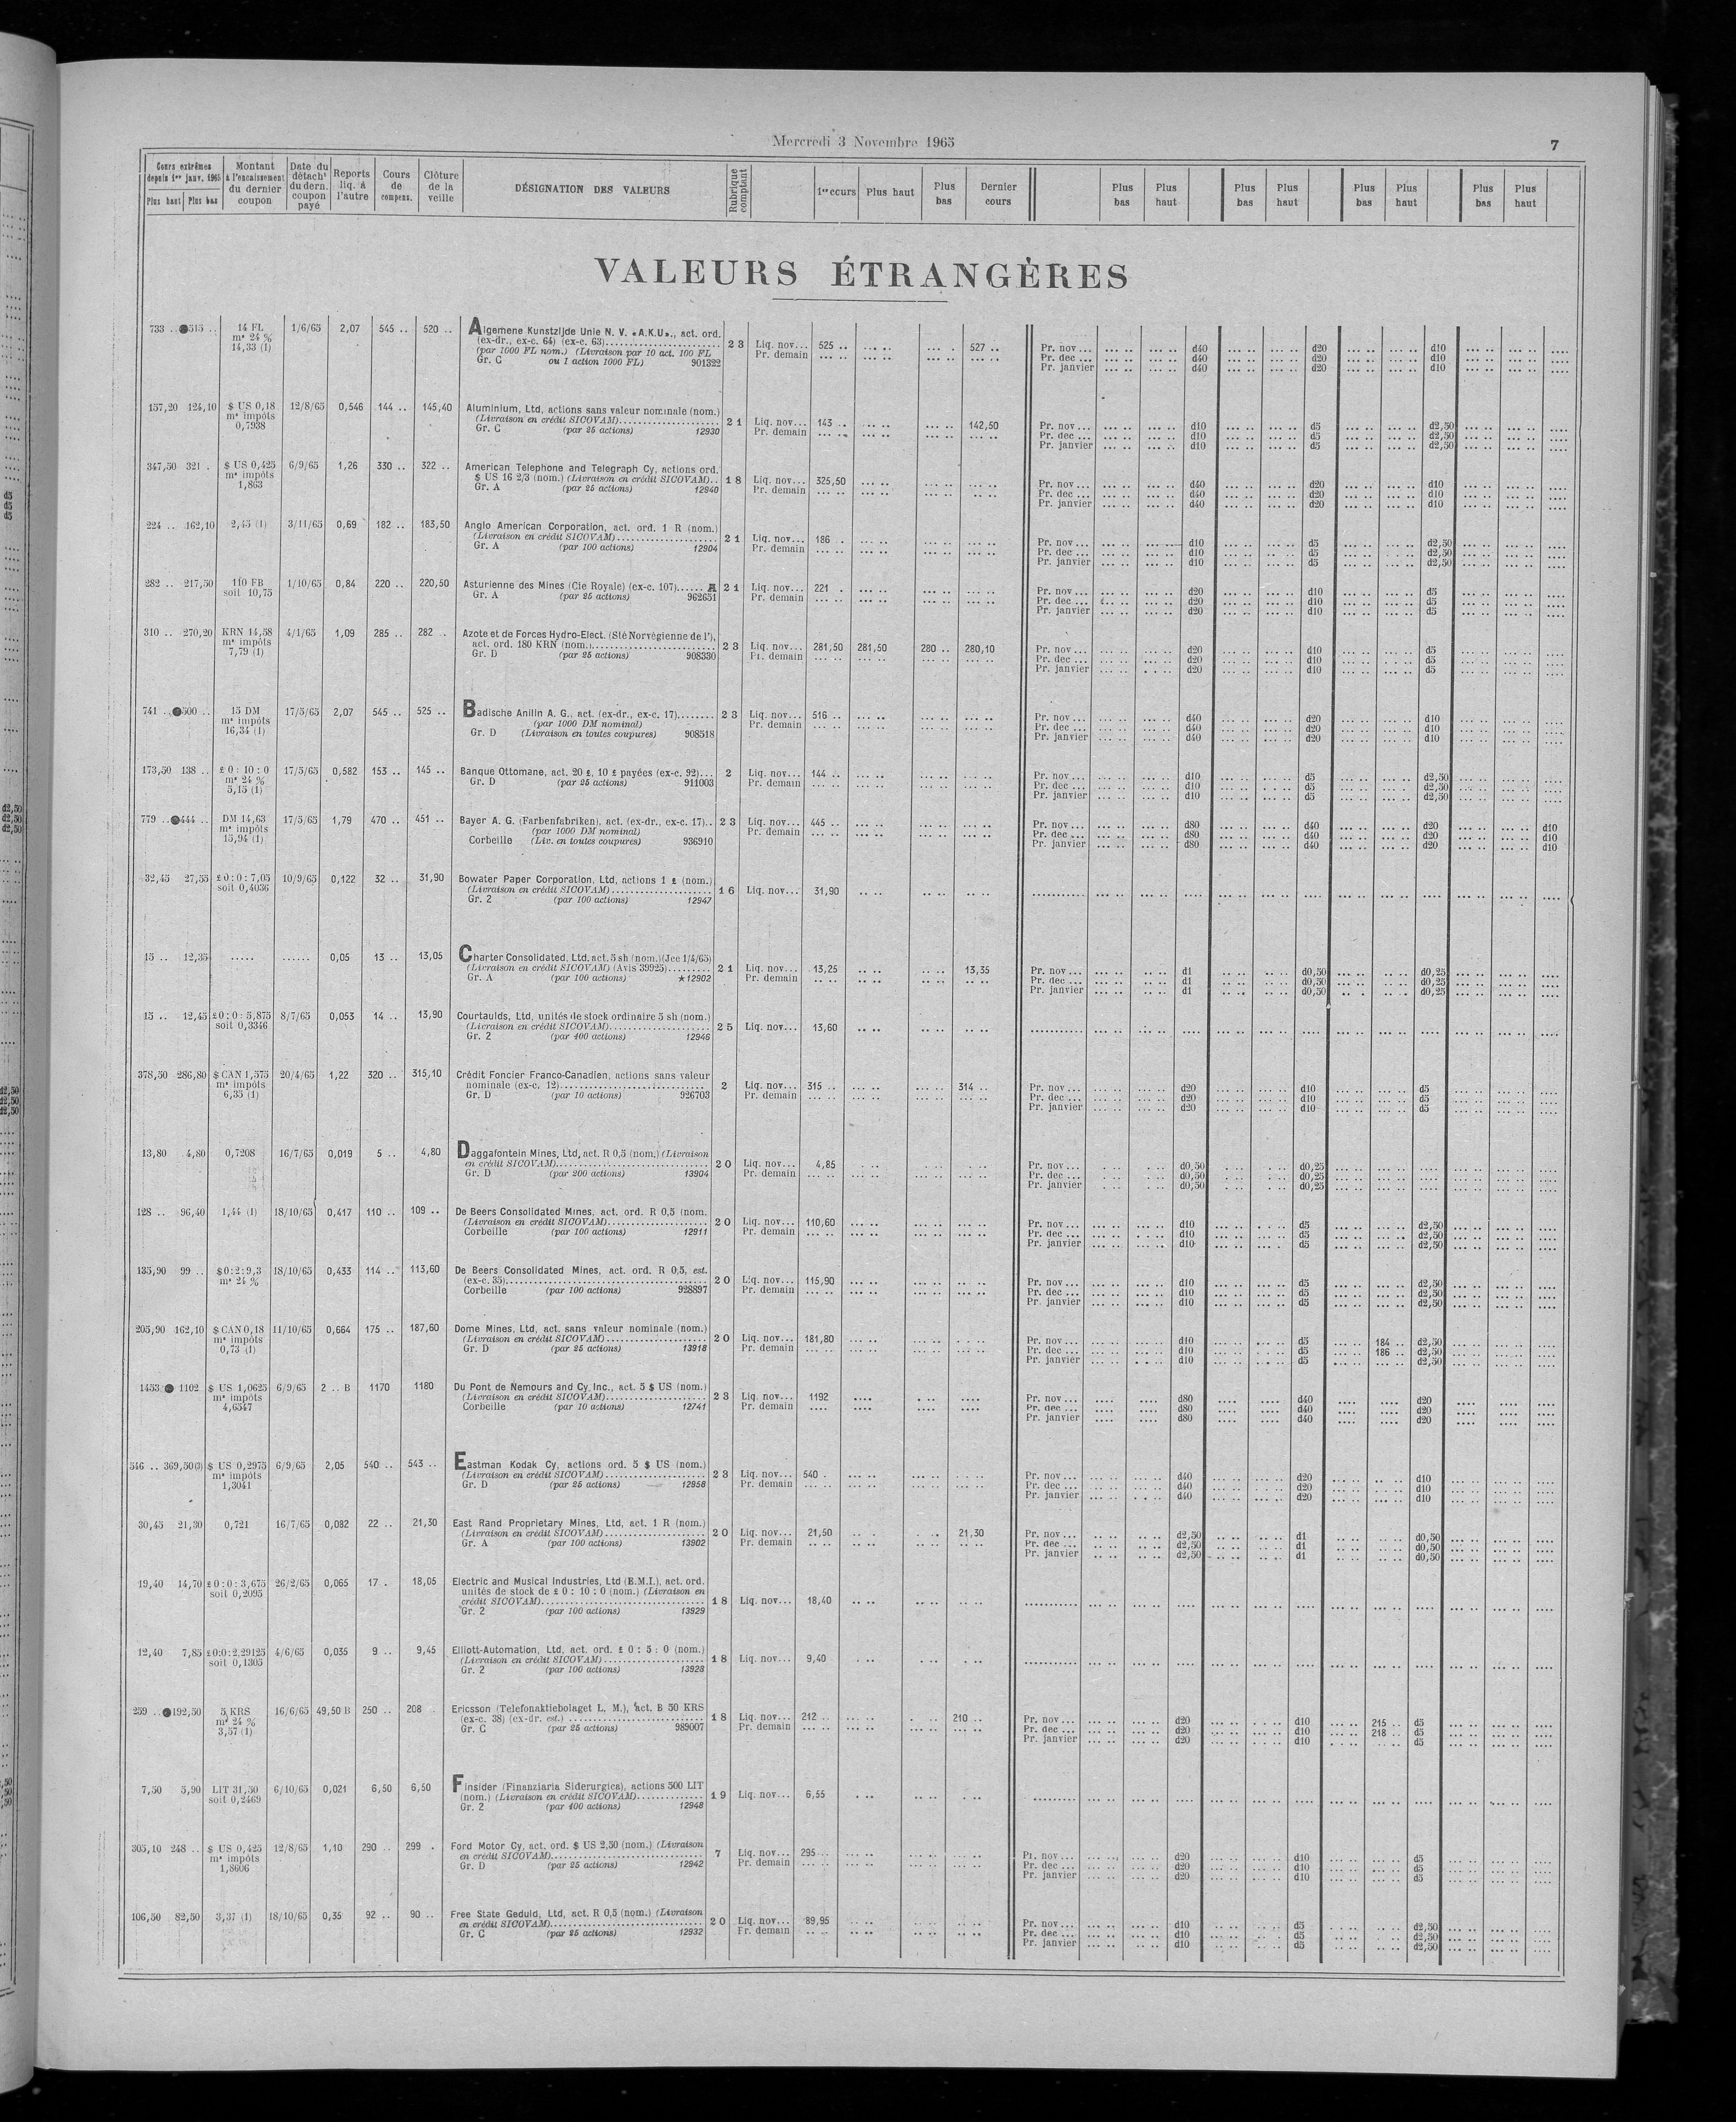 Mercredi 3 Novembre 1965
7
Cours extrêmes depuis 1er janv. 1965 Plus haut Plus bas
Montant à l'encaissement du dernier coupon
Date du détacht du dern. coupon payé
Reports liq. à l'autre
Cours de compens.
Clôture de la veille
DÉSIGNATION DES VALEURS
Rubrique comptant
1er cours Plus haut Plus bas Dernier cours
Plus bas Plus haut Plus bas Plus haut Plus bas Plus haut Plus bas Plus haut
VALEURS ÉTRANGÈRES
733 .. ●515 .. 14 FL 1/6/65 2,07 545 .. 520 .. Algemene Kunstzijde Unie N. V. «A.K.U», act. ord.
ms 24 % (ex-dr., ex-c. 64) (ex-c. 63) 23 Liq. nov... 525 .. 527 .. Pr. nov ... d40 d20 d10
14,33 (1) (par 1000 FL nom.) (Livraison par 10 act. 100 FL Pr. demain Pr. dec ... d40 d20 d10
Gr. C ou 1 action 1000 FL) 901322 Pr. janvier d40 d20 d10
157,20 124,10 $ US 0,18 12/8/65 0,546 144 .. 145,40 Aluminium, Ltd, actions sans valeur nominale (nom.)
ms impôts (Livraison en crédit SICOVAM) 21 Liq. nov... 143 .. 142,50 Pr. nov ... d10 d5 d2,50
0,7938 Gr. C (par 25 actions) 12930 Pr. demain Pr. dec ... d10 d5 d2,50
Pr. janvier d10 d5 d2,50
347,50 321 . $ US 0,425 6/9/65 1,26 330 .. 322 .. American Telephone and Telegraph Cy, actions ord.
ms impôts $ US 16 2/3 (nom.) (Livraison en crédit SICOVAM).. 18 Liq. nov... 325,50 Pr. nov ... d40 d20 d10
1,863 Gr. A (par 25 actions) 12940 Pr. demain Pr. dec ... d40 d20 d10
Pr. janvier d40 d20 d10
224 .. 162,10 2,45 (1) 3/11/65 0,69 182 .. 183,50 Anglo American Corporation, act. ord. 1 R (nom.)
(Livraison en crédit SICOVAM) 21 Liq. nov... 186 . Pr. nov ... d10 d5 d2,50
Gr. A (par 100 actions) 12904 Pr. demain Pr. dec ... d10 d5 d2,50
Pr. janvier d10 d5 d2,50
282 .. 217,50 110 FB 1/10/65 0,84 220 .. 220,50 Asturienne des Mines (Cie Royale) (ex-c. 107)...... A 21 Liq. nov... 221 . Pr. nov ... d20 d10 d5
soit 10,75 Gr. A (par 25 actions) 962651 Pr. demain Pr. dec ... d20 d10 d5
Pr. janvier d20 d10 d5
310 .. 270,20 KRN 14,58 4/1/65 1,09 285 .. 282 .. Azote et de Forces Hydro-Elect. (Sté Norvégienne de l'),
ms impôts act. ord. 180 KRN (nom.) 23 Liq. nov... 281,50 281,50 280 .. 280,10 Pr. nov ... d20 d10 d5
7,79 (1) Gr. D (par 25 actions) 908330 Pr. demain Pr. dec ... d20 d10 d5
Pr. janvier d20 d10 d5
741 .. ●500 .. 15 DM 17/5/65 2,07 545 .. 525 .. Badische Anilin A. G., act. (ex-dr., ex-c. 17)........ 23 Liq. nov... 516 .. Pr. nov ... d40 d20 d10
ms impôts (par 1000 DM nominal) Pr. demain Pr. dec ... d40 d20 d10
16,34 (1) Gr. D (Livraison en toutes coupures) 908518 Pr. janvier d40 d20 d10
173,50 138 .. £ 0 : 10 : 0 17/5/65 0,582 153 .. 145 .. Banque Ottomane, act. 20 £, 10 £ payées (ex-c. 92)... 2 Liq. nov... 144 .. Pr. nov ... d10 d5 d2,50
ms 24 % Gr. D (par 25 actions) 911003 Pr. demain Pr. dec ... d10 d5 d2,50
5,15 (1) Pr. janvier d10 d5 d2,50
779 .. ●444 .. DM 14,63 17/5/65 1,79 470 .. 451 .. Bayer A. G. (Farbenfabriken), act. (ex-dr., ex-c. 17).. 23 Liq. nov... 445 .. Pr. nov ... d80 d40 d20 d10
ms impôts (par 1000 DM nominal) Pr. demain Pr. dec ... d80 d40 d20 d10
15,94 (1) Corbeille (Liv. en toutes coupures) 936910 Pr. janvier d80 d40 d20 d10
32,45 27,55 £ 0 : 0 : 7,05 10/9/65 0,122 32 .. 31,90 Bowater Paper Corporation, Ltd, actions 1 £ (nom.)
soit 0,4036 (Livraison en crédit SICOVAM) 16 Liq. nov... 31,90
Gr. 2 (par 100 actions) 12947
15 .. 12,35 ..... ...... 0,05 13 .. 13,05 Charter Consolidated, Ltd, act. 5 sh (nom.) (Jce 1/4/65)
(Livraison en crédit SICOVAM) (Avis 39925) 21 Liq. nov... 13,25 13,35 Pr. nov ... d1 d0,50 d0,25
Gr. A (par 100 actions) ★12902 Pr. demain Pr. dec ... d1 d0,50 d0,25
Pr. janvier d1 d0,50 d0,25
15 .. 12,45 £ 0 : 0 : 5,875 8/7/65 0,053 14 .. 13,90 Courtaulds, Ltd, unités de stock ordinaire 5 sh (nom.)
soit 0,3346 (Livraison en crédit SICOVAM) 25 Liq. nov... 13,60
Gr. 2 (par 400 actions) 12946
378,50 286,80 $ CAN 1,575 20/4/65 1,22 320 .. 315,10 Crédit Foncier Franco-Canadien, actions sans valeur
ms impôts nominale (ex-c. 12) 2 Liq. nov... 315 .. 314 .. Pr. nov ... d20 d10 d5
6,35 (1) Gr. D (par 10 actions) 926703 Pr. demain Pr. dec ... d20 d10 d5
Pr. janvier d20 d10 d5
13,80 4,80 0,7208 16/7/65 0,019 5 .. 4,80 Daggafontein Mines, Ltd, act. R 0,5 (nom.) (Livraison
en crédit SICOVAM) 20 Liq. nov... 4,85 Pr. nov ... d0,50 d0,25
Gr. D (par 200 actions) 13904 Pr. demain Pr. dec ... d0,50 d0,25
Pr. janvier d0,50 d0,25
128 .. 96,40 1,44 (1) 18/10/65 0,417 110 .. 109 .. De Beers Consolidated Mines, act. ord. R 0,5 (nom.
(Livraison en crédit SICOVAM) 20 Liq. nov... 110,60 Pr. nov ... d10 d5 d2,50
Corbeille (par 100 actions) 12911 Pr. demain Pr. dec ... d10 d5 d2,50
Pr. janvier d10 d5 d2,50
135,90 99 .. $ 0 : 2 : 9,3 18/10/65 0,433 114 .. 113,60 De Beers Consolidated Mines, act. ord. R 0,5, est.
ms 24 % (ex-c. 35) 20 Liq. nov... 115,90 Pr. nov ... d10 d5 d2,50
Corbeille (par 100 actions) 928897 Pr. demain Pr. dec ... d10 d5 d2,50
Pr. janvier d10 d5 d2,50
205,90 162,10 $ CAN 0,18 11/10/65 0,664 175 .. 187,60 Dome Mines, Ltd, act. sans valeur nominale (nom.)
ms impôts (Livraison en crédit SICOVAM) 20 Liq. nov... 181,80 Pr. nov ... d10 d5 184 .. d2,50
0,73 (1) Gr. D (par 25 actions) 13918 Pr. demain Pr. dec ... d10 d5 186 .. d2,50
Pr. janvier d10 d5 d2,50
1453 ● 1102 $ US 1,0625 6/9/65 2 .. B 1170 1180 Du Pont de Nemours and Cy Inc., act. 5 $ US (nom.)
ms impôts (Livraison en crédit SICOVAM) 23 Liq. nov... 1192 Pr. nov ... d80 d40 d20
4,6547 Corbeille (par 10 actions) 12741 Pr. demain Pr. dec ... d80 d40 d20
Pr. janvier d80 d40 d20
546 .. 369,50 $ US 0,2975 6/9/65 2,05 540 .. 543 .. Eastman Kodak Cy, actions ord. 5 $ US (nom.)
ms impôts (Livraison en crédit SICOVAM) 23 Liq. nov... 540 . Pr. nov ... d40 d20 d10
1,3041 Gr. D (par 25 actions) 12958 Pr. demain Pr. dec ... d40 d20 d10
Pr. janvier d40 d20 d10
30,45 21,30 0,721 16/7/65 0,082 22 .. 21,30 East Rand Proprietary Mines, Ltd, act. 1 R (nom.)
(Livraison en crédit SICOVAM) 20 Liq. nov... 21,50 21,30 Pr. nov ... d2,50 d1 d0,50
Gr. A (par 100 actions) 13902 Pr. demain Pr. dec ... d2,50 d1 d0,50
Pr. janvier d2,50 d1 d0,50
19,40 14,70 £ 0 : 0 : 3,675 26/2/65 0,065 17 . 18,05 Electric and Musical Industries, Ltd (E.M.I.), act. ord.
soit 0,2095 unités de stock de £ 0 : 10 : 0 (nom.) (Livraison en
crédit SICOVAM) 18 Liq. nov... 18,40
Gr. 2 (par 100 actions) 13929
12,40 7,85 £0:0:2,29125 4/6/65 0,035 9 .. 9,45 Elliott-Automation, Ltd, act. ord. £ 0 : 5 : 0 (nom.)
soit 0,1305 (Livraison en crédit SICOVAM) 18 Liq. nov... 9,40
Gr. 2 (par 100 actions) 13928
259 .. ●192,50 5 KRS 16/6/65 49,50 B 250 .. 208 . Ericsson (Telefonaktiebolaget L. M.), act. B 50 KRS
ms 24 % (ex-c. 38) (ex-dr. est.) 18 Liq. nov... 212 .. 210 .. Pr. nov ... d20 d10 215 .. d5
3,57 (1) Gr. C (par 25 actions) 989007 Pr. demain Pr. dec ... d20 d10 218 .. d5
Pr. janvier d20 d10 d5
7,50 5,90 LIT 31,50 6/10/65 0,021 6,50 6,50 Finsider (Finanziaria Siderurgica), actions 500 LIT
soit 0,2469 (nom.) (Livraison en crédit SICOVAM) 19 Liq. nov... 6,55
Gr. 2 (par 400 actions) 12948
305,10 248 .. $ US 0,425 12/8/65 1,10 290 .. 299 . Ford Motor Cy, act. ord. $ US 2,50 (nom.) (Livraison
ms impôts en crédit SICOVAM) 7 Liq. nov... 295 .. Pr. nov ... d20 d10 d5
1,8606 Gr. D (par 25 actions) 12942 Pr. demain Pr. dec ... d20 d10 d5
Pr. janvier d20 d10 d5
106,50 82,50 3,37 (1) 18/10/65 0,35 92 .. 90 .. Free State Geduld, Ltd, act. R 0,5 (nom.) (Livraison
en crédit SICOVAM) 20 Liq. nov... 89,95 Pr. nov ... d10 d5 d2,50
Gr. C (par 25 actions) 12932 Pr. demain Pr. dec ... d10 d5 d2,50
Pr. janvier d10 d5 d2,50